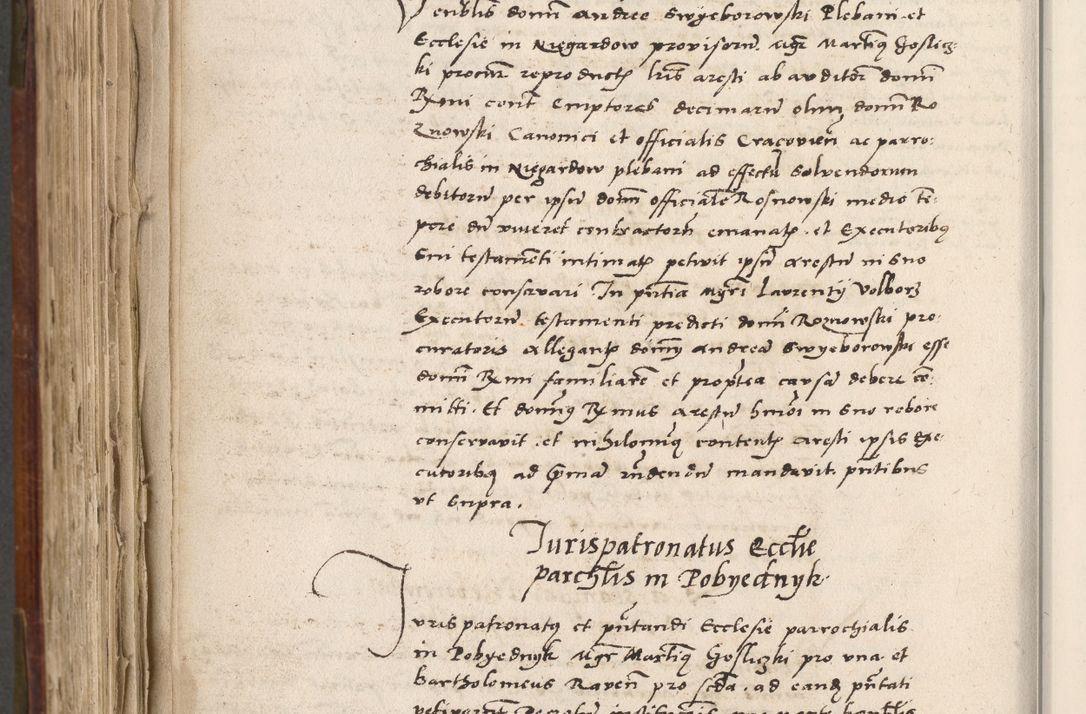 Venblis domi Andree Swyeborowski Plebani et
Ecclesie in Niegardow provisoru. Mgr Martinq Goslicz
ki procur reproductq lris aresti ab auditor domi
Rxmi cont emptores decimaru olim domi Ro
znowski Canonici et officialis Cracovien ac parro:
chialis in Niegardow plebani ad effectu solvendorum
debitoru per ipsu domi officiale Rosnowski medio te:
pore du viveret contractoru emanatq. et Executoribq
sui testamenti intimatq petivit ipsu arestu in suo
robore conservari. In pntia Mgri Laurentij Volborz
Executoru testamenti predicti domi Roznowski pro:
curatoris Allegantq domnu Andrea Swyeborowski esse
domi Rxmi familiare et proptea causa debere co:
mitti. Et domnq Rxmus arestu hmoi in suo robore
conservavit. et nihilominq contentq aresti ipsis Exe:
cutoribq ad pma rndendu mandavit pntibus
ut supra.
Jurispatronatus Ecclie
parchlis in Pobyednyk.
Juris patronatq et pntandi Ecclesie parrochialis
in Pobyednyk Mgr Martinq Gosliczki pro una. et
Bartholomeus Raven pro scda. ad eand pntati